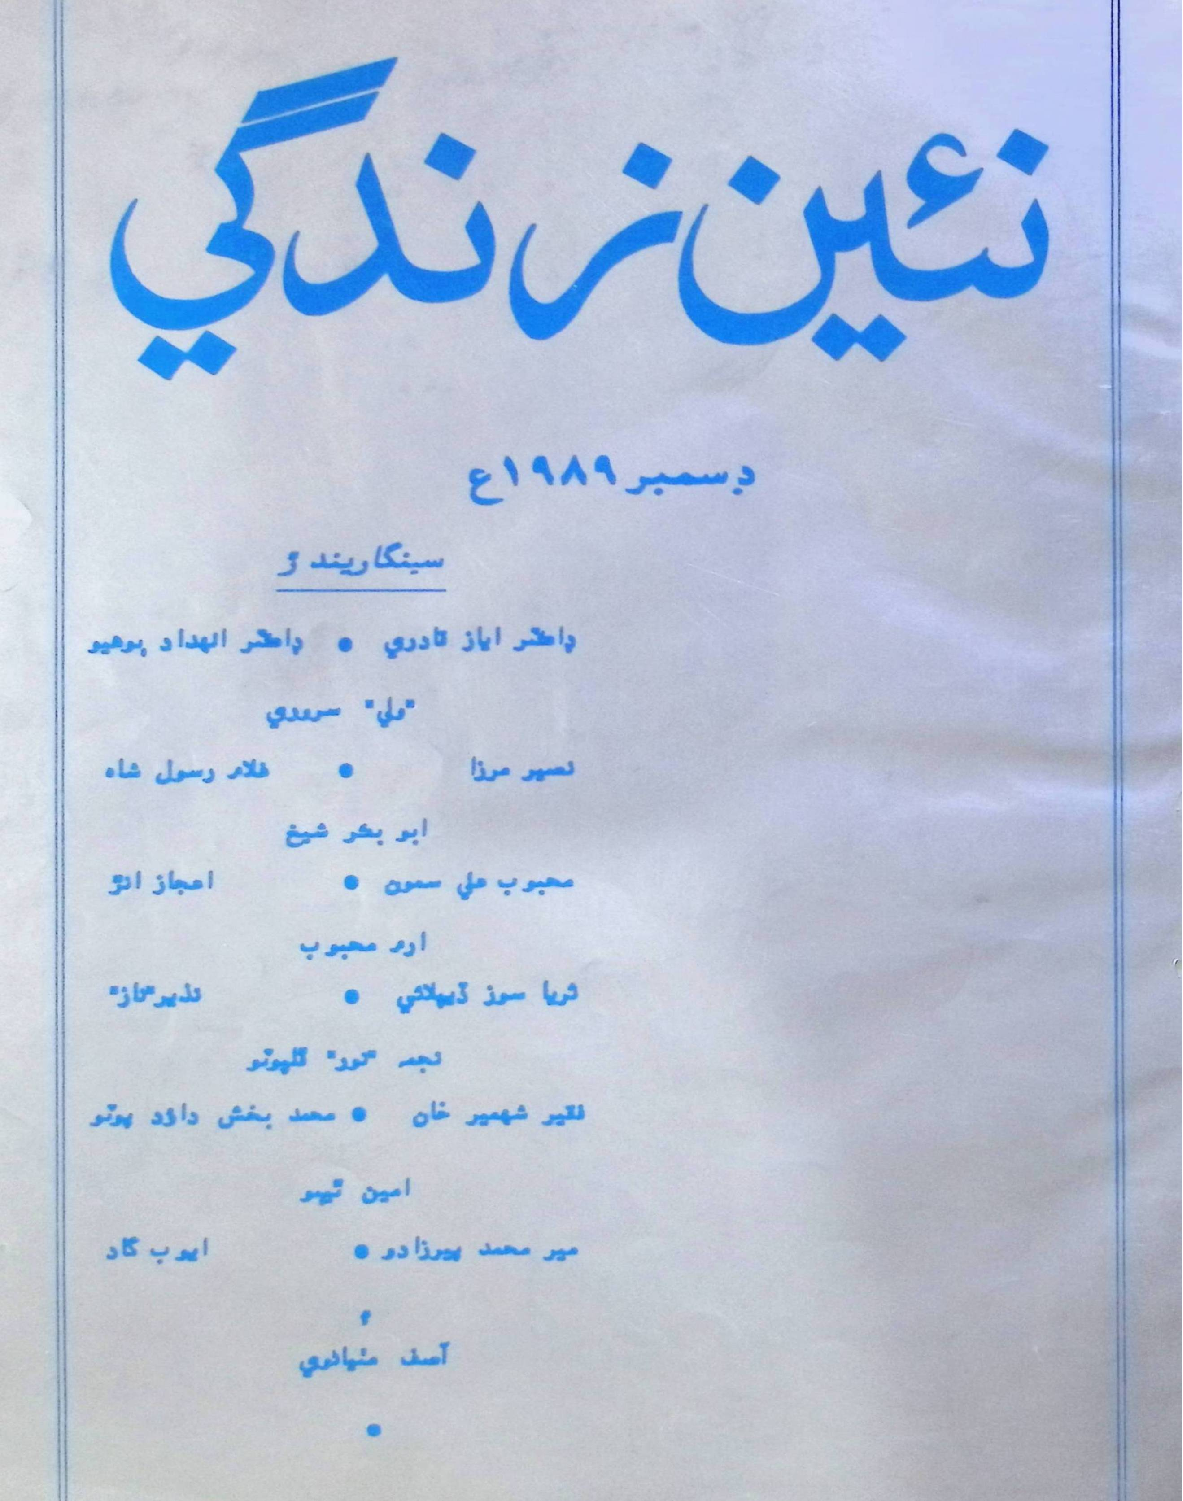 نئين زندگي
ڊسمبر ۱۹۸۹ع
سينگاريندڙ
ڊاڪٽر اياز قادري ● ڊاڪٽر الهداد ٻوهيو
"ولي" سروري
نصير مرزا ● غلام رسول شاه
ابو بڪر شيخ
محبوب علي سمون ● اعجاز انڙ
ارم محبوب
ثريا سوز ڏيپلائي ● نذير "ناز"
نجمہ "نور" ڦلپوٽو
فقير شهمير خان ● محمد بخش داؤد پوٽو
امين ٽيپو
مير محمد پيرزادو ● ايوب گاد
۽
آصف مٺياڻوي
●